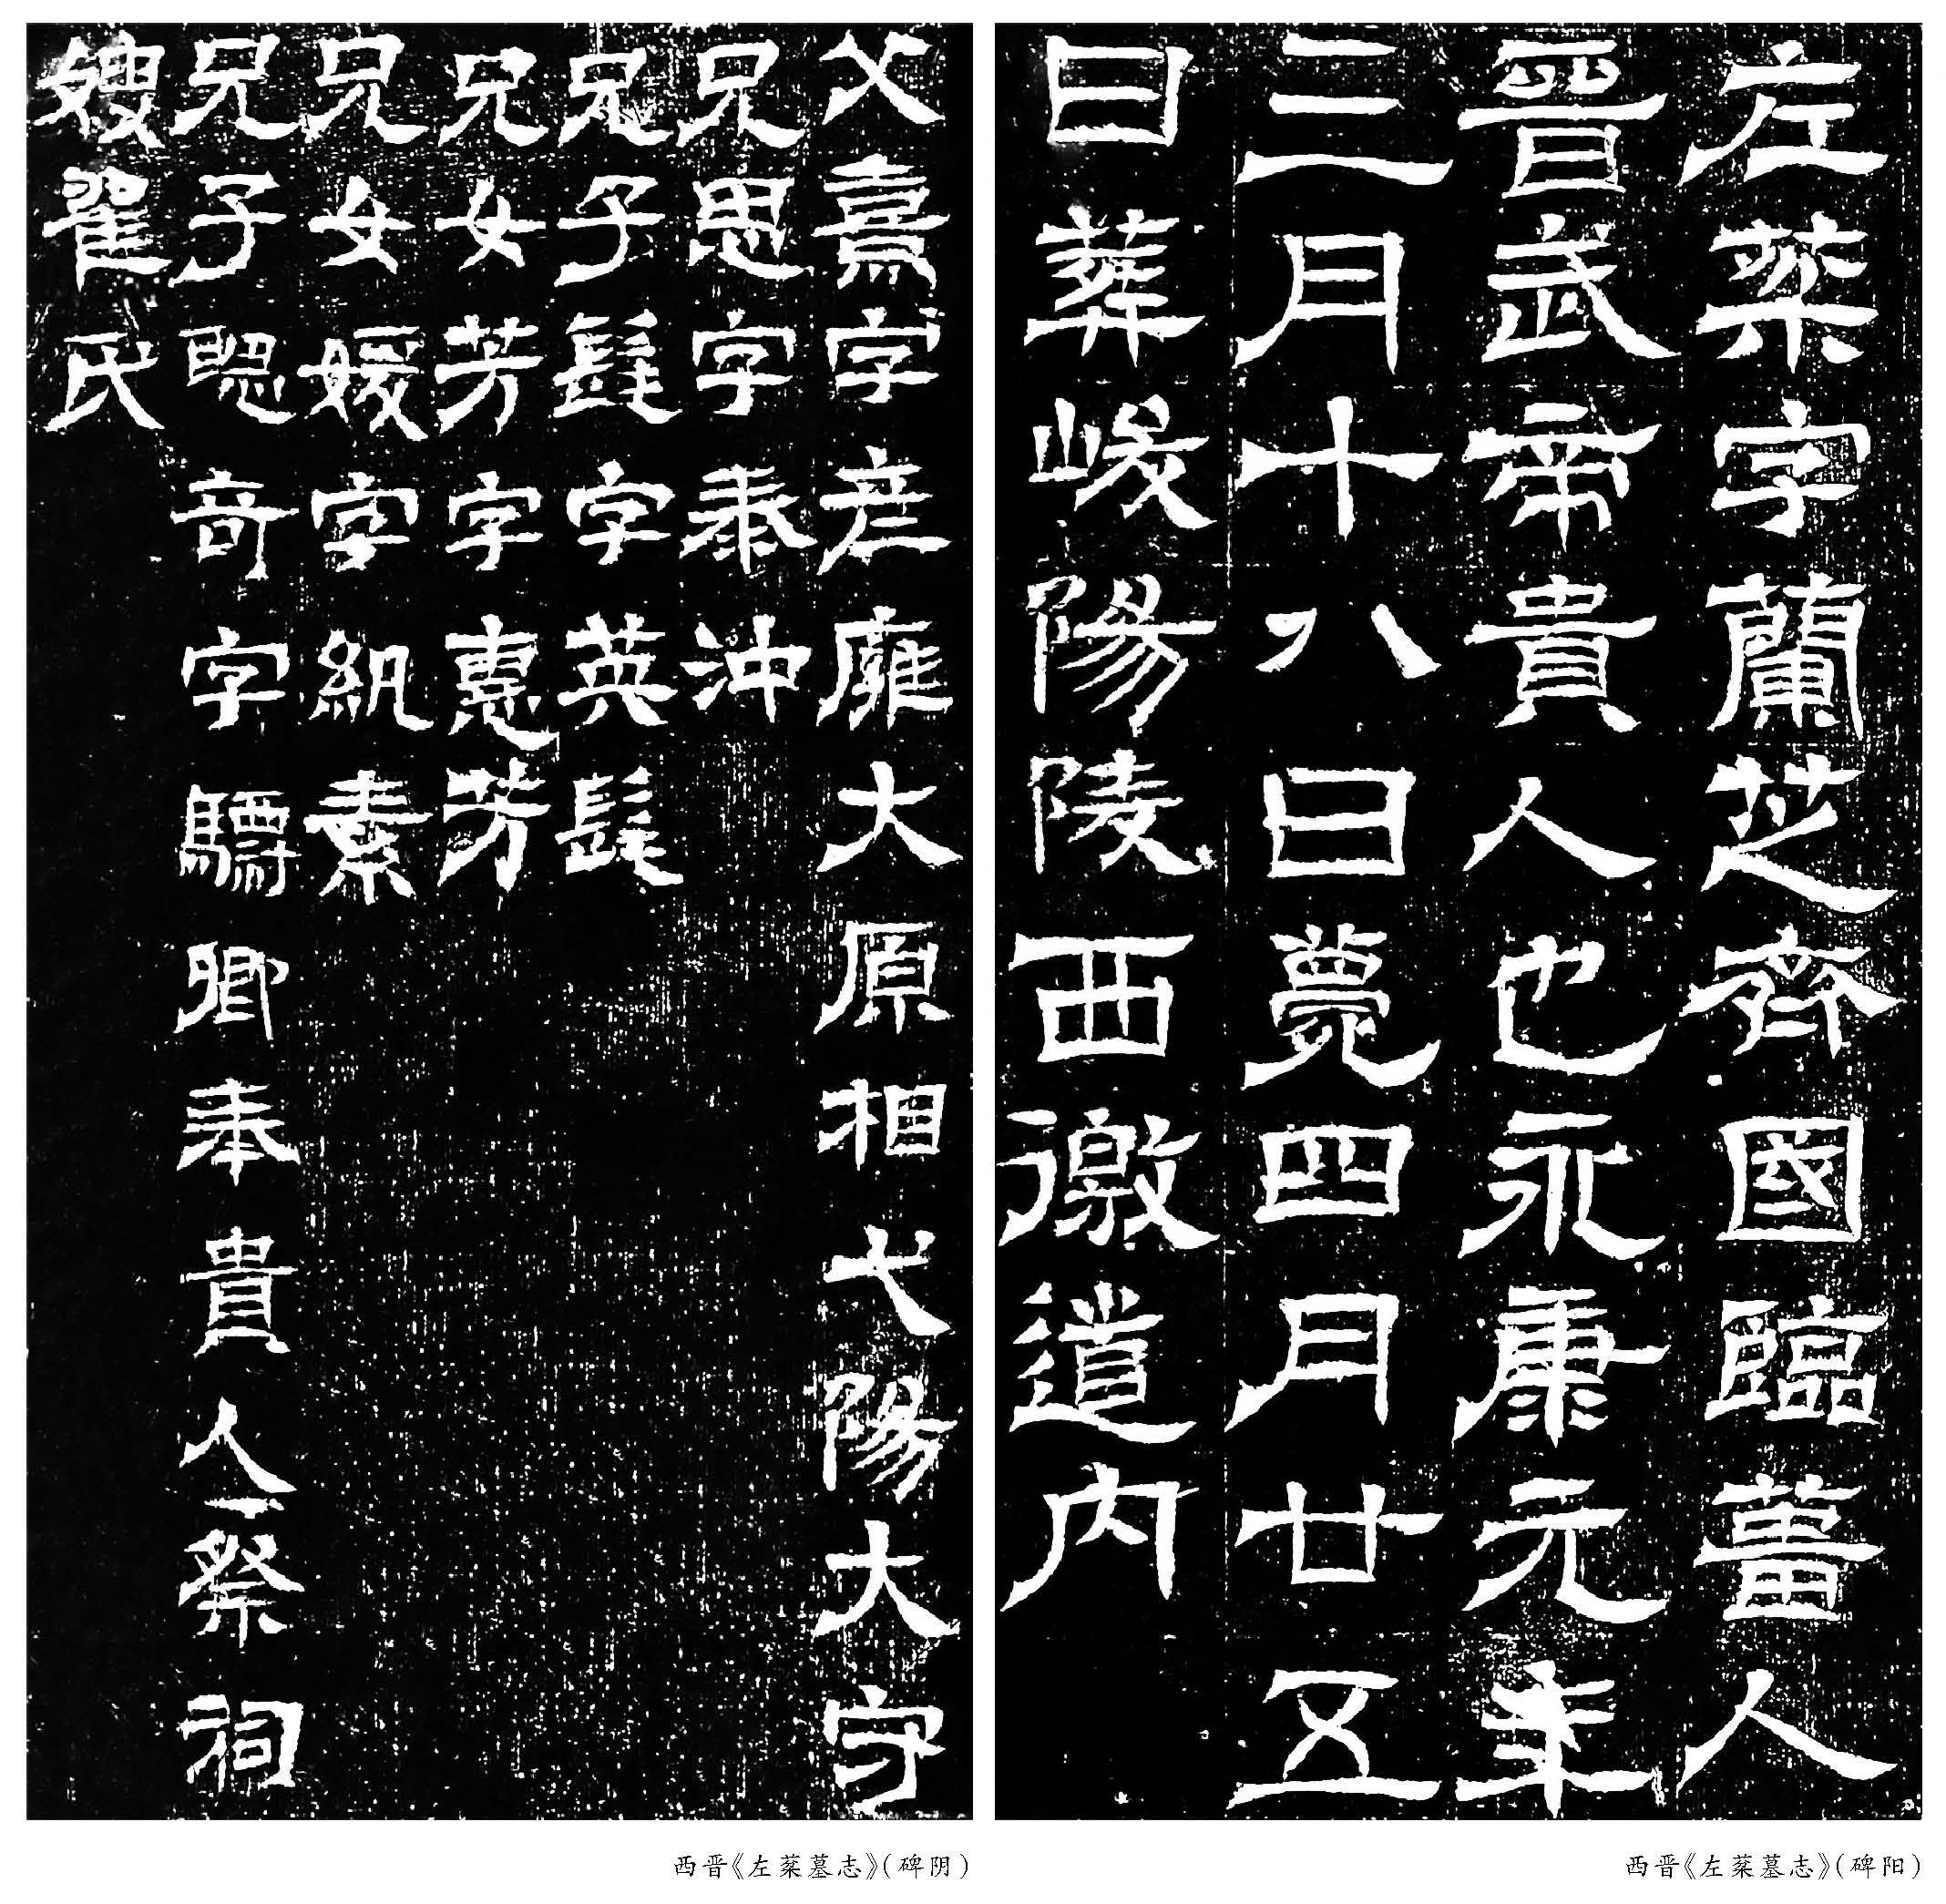 左棻字蘭芝齊國臨菑人
晉武帝貴人也永康元年
三月十八日薨四月廿五
日葬峻陽陵西徼道内
父熹字彦雍大原相弋陽大守
兄思字泰沖
兄子髦字英髦
兄女芳字惠芳
兄女媛字紈素
兄子聦奇字驃卿奉貴人祭祠
嫂翟氏
西晋《左棻墓志》(碑阳)
西晋《左棻墓志》(碑阴)